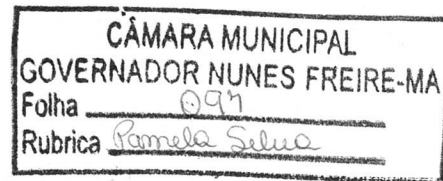 CÂMARA MUNICIPAL
GOVERNADOR NUNES FREIRE-MA
Folha 097
Rubrica Pamela Silva